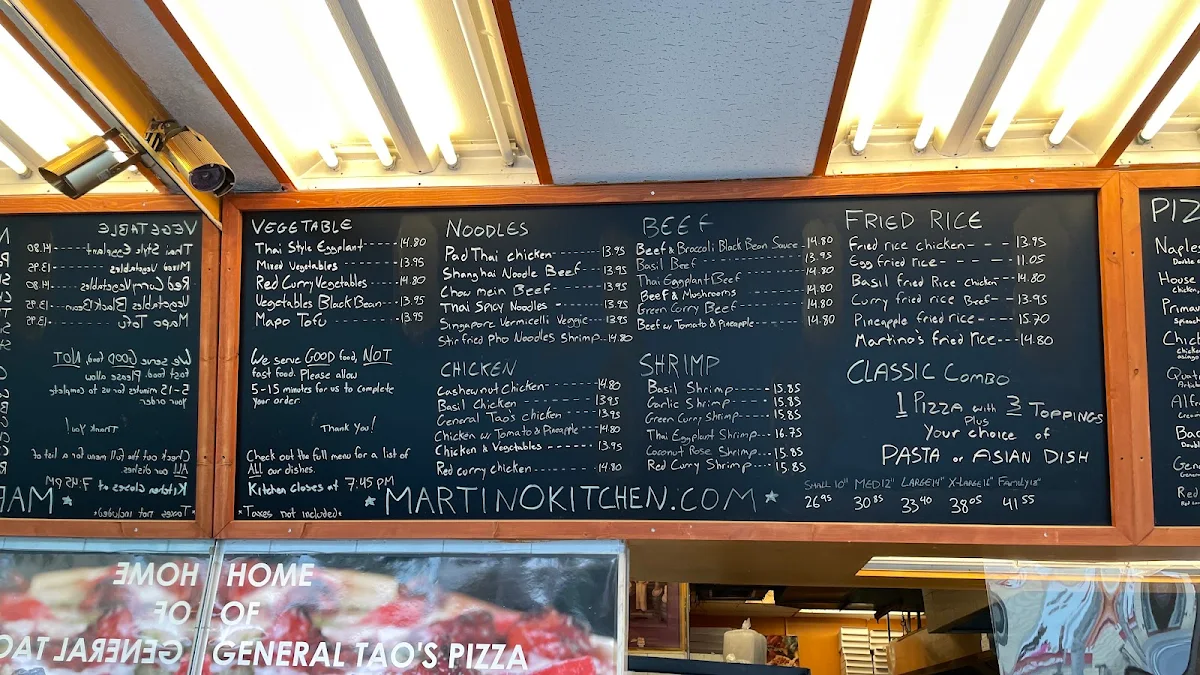 VEGETABLE
Thai Style Eggplant 14.80
Mixed Vegetables 13.95
Red Curry Vegetables 14.80
Vegetables Black Bean 13.95
Mapo Tofu 13.95
We serve GOOD food, NOT
fast food. Please allow
5-15 minutes for us to complete
your order.
Thank You!
Check out the full menu for a list of
ALL our dishes.
Kitchen closes at 7:45 PM
*Taxes not included*
NOODLES
Pad Thai chicken 13.95
Shanghai Noodle Beef 13.95
Chow mein Beef 13.95
Thai Spicy Noodles 13.95
Singapore Vermicelli Veggie 13.95
Stir fried Pho Noodles Shrimp 14.80
CHICKEN
Cashewnut Chicken 14.80
Basil Chicken 13.95
General Tao's chicken 13.95
Chicken w/ Tomato & Pineapple 14.80
Chicken & Vegetables 13.95
Red curry chicken 14.80
BEEF
Beef & Broccoli Black Bean Sauce 14.80
Basil Beef 13.95
Thai Eggplant Beef 14.80
Beef & Mushrooms 14.80
Green Curry Beef 14.80
Beef w/ Tomato & Pineapple 14.80
SHRIMP
Basil Shrimp 15.85
Garlic Shrimp 15.85
Green Curry Shrimp 15.85
Thai Eggplant Shrimp 16.75
Coconut Rose Shrimp 15.85
Red Curry Shrimp 15.85
FRIED RICE
Fried rice chicken 13.95
Egg fried rice 11.05
Basil fried Rice Chicken 14.80
Curry fried rice Beef 13.95
Pineapple fried rice 15.70
Martino's fried rice 14.80
CLASSIC COMBO
1 PIZZA with 3 TOPPINGS
Plus
Your choice of
PASTA or ASIAN DISH
SMALL 10" MED 12" LARGE 14" X-LARGE 16" Family 18"
26.95 30.85 33.40 38.05 41.55
MARTINOKITCHEN.COM
PIZ
Naples
House
chicken,
Primav
Spinach
Chick
chicken
Quat
Alf
Ba
Gene
Red
HOME
OF
GENERAL TAO'S PIZZA